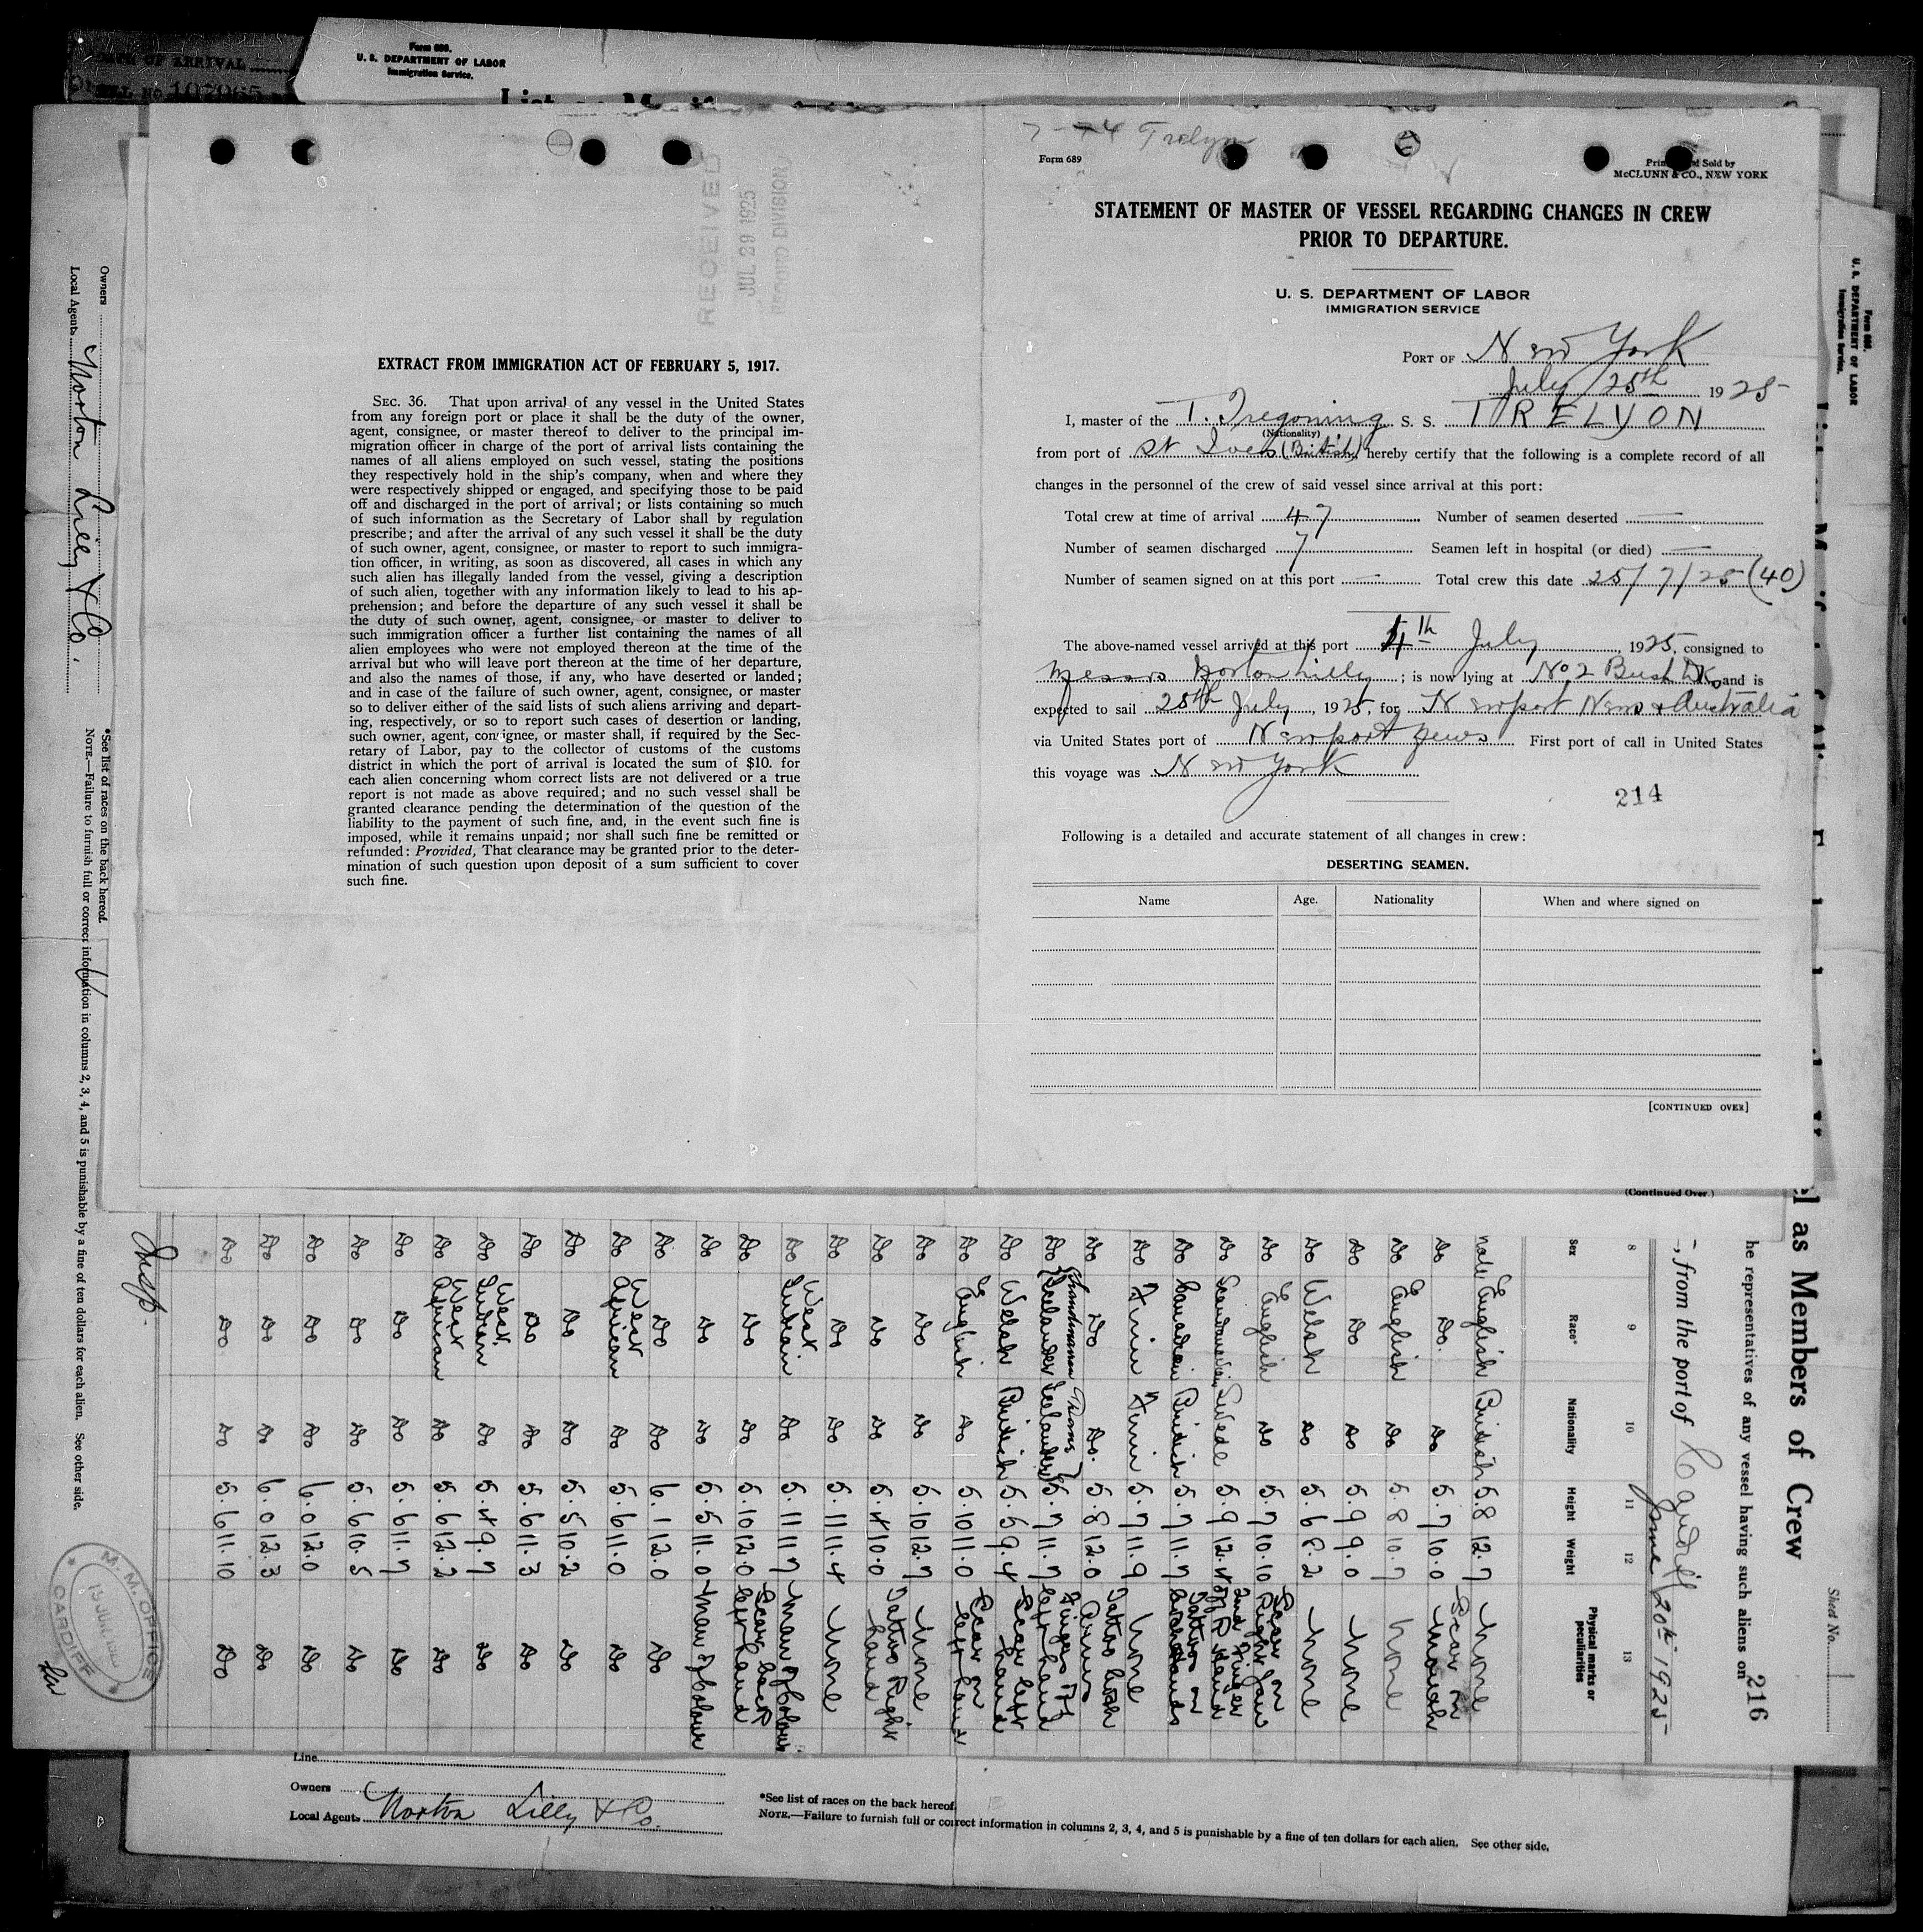 DATE OF ARRIVAL
107065
Form 689.
U. S. DEPARTMENT OF LABOR
Immigration Service.
RECEIVED
JUL 29 1925
RECORD DIVISION
EXTRACT FROM IMMIGRATION ACT OF FEBRUARY 5, 1917.
SEC. 36. That upon arrival of any vessel in the United States
from any foreign port or place it shall be the duty of the owner,
agent, consignee, or master thereof to deliver to the principal im-
migration officer in charge of the port of arrival lists containing the
names of all aliens employed on such vessel, stating the positions
they respectively hold in the ship's company, when and where they
were respectively shipped or engaged, and specifying those to be paid
off and discharged in the port of arrival; or lists containing so much
of such information as the Secretary of Labor shall by regulation
prescribe; and after the arrival of any such vessel it shall be the duty
of such owner, agent, consignee, or master to report to such immigra-
tion officer, in writing, as soon as discovered, all cases in which any
such alien has illegally landed from the vessel, giving a description
of such alien, together with any information likely to lead to his ap-
prehension; and before the departure of any such vessel it shall be
the duty of such owner, agent, consignee, or master to deliver to
such immigration officer a further list containing the names of all
alien employees who were not employed thereon at the time of the
arrival but who will leave port thereon at the time of her departure,
and also the names of those, if any, who have deserted or landed;
and in case of the failure of such owner, agent, consignee, or master
so to deliver either of the said lists of such aliens arriving and depart-
ing, respectively, or so to report such cases of desertion or landing,
such owner, agent, consignee, or master shall, if required by the Sec-
retary of Labor, pay to the collector of customs of the customs
district in which the port of arrival is located the sum of $10. for
each alien concerning whom correct lists are not delivered or a true
report is not made as above required; and no such vessel shall be
granted clearance pending the determination of the question of the
liability to the payment of such fine, and, in the event such fine is
imposed, while it remains unpaid; nor shall such fine be remitted or
refunded: Provided, That clearance may be granted prior to the deter-
mination of such question upon deposit of a sum sufficient to cover
such fine.
Form 689
Sold by
McCLUNN & CO., NEW YORK
STATEMENT OF MASTER OF VESSEL REGARDING CHANGES IN CREW
PRIOR TO DEPARTURE.
U. S. DEPARTMENT OF LABOR
IMMIGRATION SERVICE
PORT OF New York
July 25th 1925
I, master of the T. Tregoning S. S. TRELYON
(Nationality)
from port of St Ives (British) hereby certify that the following is a complete record of all
changes in the personnel of the crew of said vessel since arrival at this port:
Total crew at time of arrival 47 Number of seamen deserted —
Number of seamen discharged 7 Seamen left in hospital (or died) —
Number of seamen signed on at this port — Total crew this date 25/7/25 (40)
The above-named vessel arrived at this port 4th July, 1925, consigned to
Messrs Norton Lilly; is now lying at No 2 Bush Dk and is
expected to sail 25th July, 1925, for Newport News & Australia
via United States port of Newport News First port of call in United States
this voyage was New York
214
Following is a detailed and accurate statement of all changes in crew:
DESERTING SEAMEN.
Name Age. Nationality When and where signed on
[CONTINUED OVER]
(Continued Over.)
Form 689.
U. S. DEPARTMENT OF LABOR
Immigration Service.
as Members of Crew
Sheet No.
he representatives of any vessel having such aliens on
216
, from the port of Cardiff June 20th 1925
8 9 10 11 12 13
Sex Race* Nationality Height Weight Physical marks or peculiarities
male English British 5.8 12.7 None
Do Do. Do 5.7 10.0 Scar on mouth
Do English Do 5.8 10.7 None
Do Do Do 5.9 9.0 None
Do Welsh Do 5.6 8.2 None
Do English Do 5.7 10.10 Scar on Right Jaw
Do Scandinavian Swede 5.9 12.4 2nd Finger off R Hand
Do Canadian British 5.7 11.7 Tattoo on both hands
Do Finn Finn 5.7 11.9 None
Do Do Do. 5.8 12.0 Tattoo both Arms
Do 5.7 11.7 left hand
Do Welsh British 5.5 9.4 Scar left hand
Do English Do 5.10 11.0 Scar on left hand
Do Do Do 5.10 12.7 None
Do Do Do 5.4 10.0 Tattoo Right hand
Do Do Do 5.11 11.4 None
Do West Indian Do 5.11 11.7 Man of Colour
Do Do Do 5.10 12.0 Scar back left hand
Do Do Do 5.5 11.0 Man of Colour
Do Do Do 6.1 12.0 Do
Do West African Do 5.6 11.0 Do
Do Do Do 5.5 10.2 Do
Do Do Do 5.6 11.3 Do
Do West Indian Do 5.4 9.7 Do
Do West African Do 5.6 12.2 Do
Do Do Do 5.6 11.7 Do
Do Do Do 5.6 10.5 Do
Do Do Do 6.0 12.0 Do
Do Do Do 6.0 12.3 Do
Do Do Do 5.6 11.10 Do
M. M. OFFICE
CARDIFF
Owners
Local Agents Norton Lilly & Co.
*See list of races on the back hereof.
NOTE.—Failure to furnish full or correct information in columns 2, 3, 4, and 5 is punishable by a fine of ten dollars for each alien. See other side.
Line
Owners
Local Agents Norton Lilly & Co.
*See list of races on the back hereof.
NOTE.—Failure to furnish full or correct information in columns 2, 3, 4, and 5 is punishable by a fine of ten dollars for each alien. See other side.